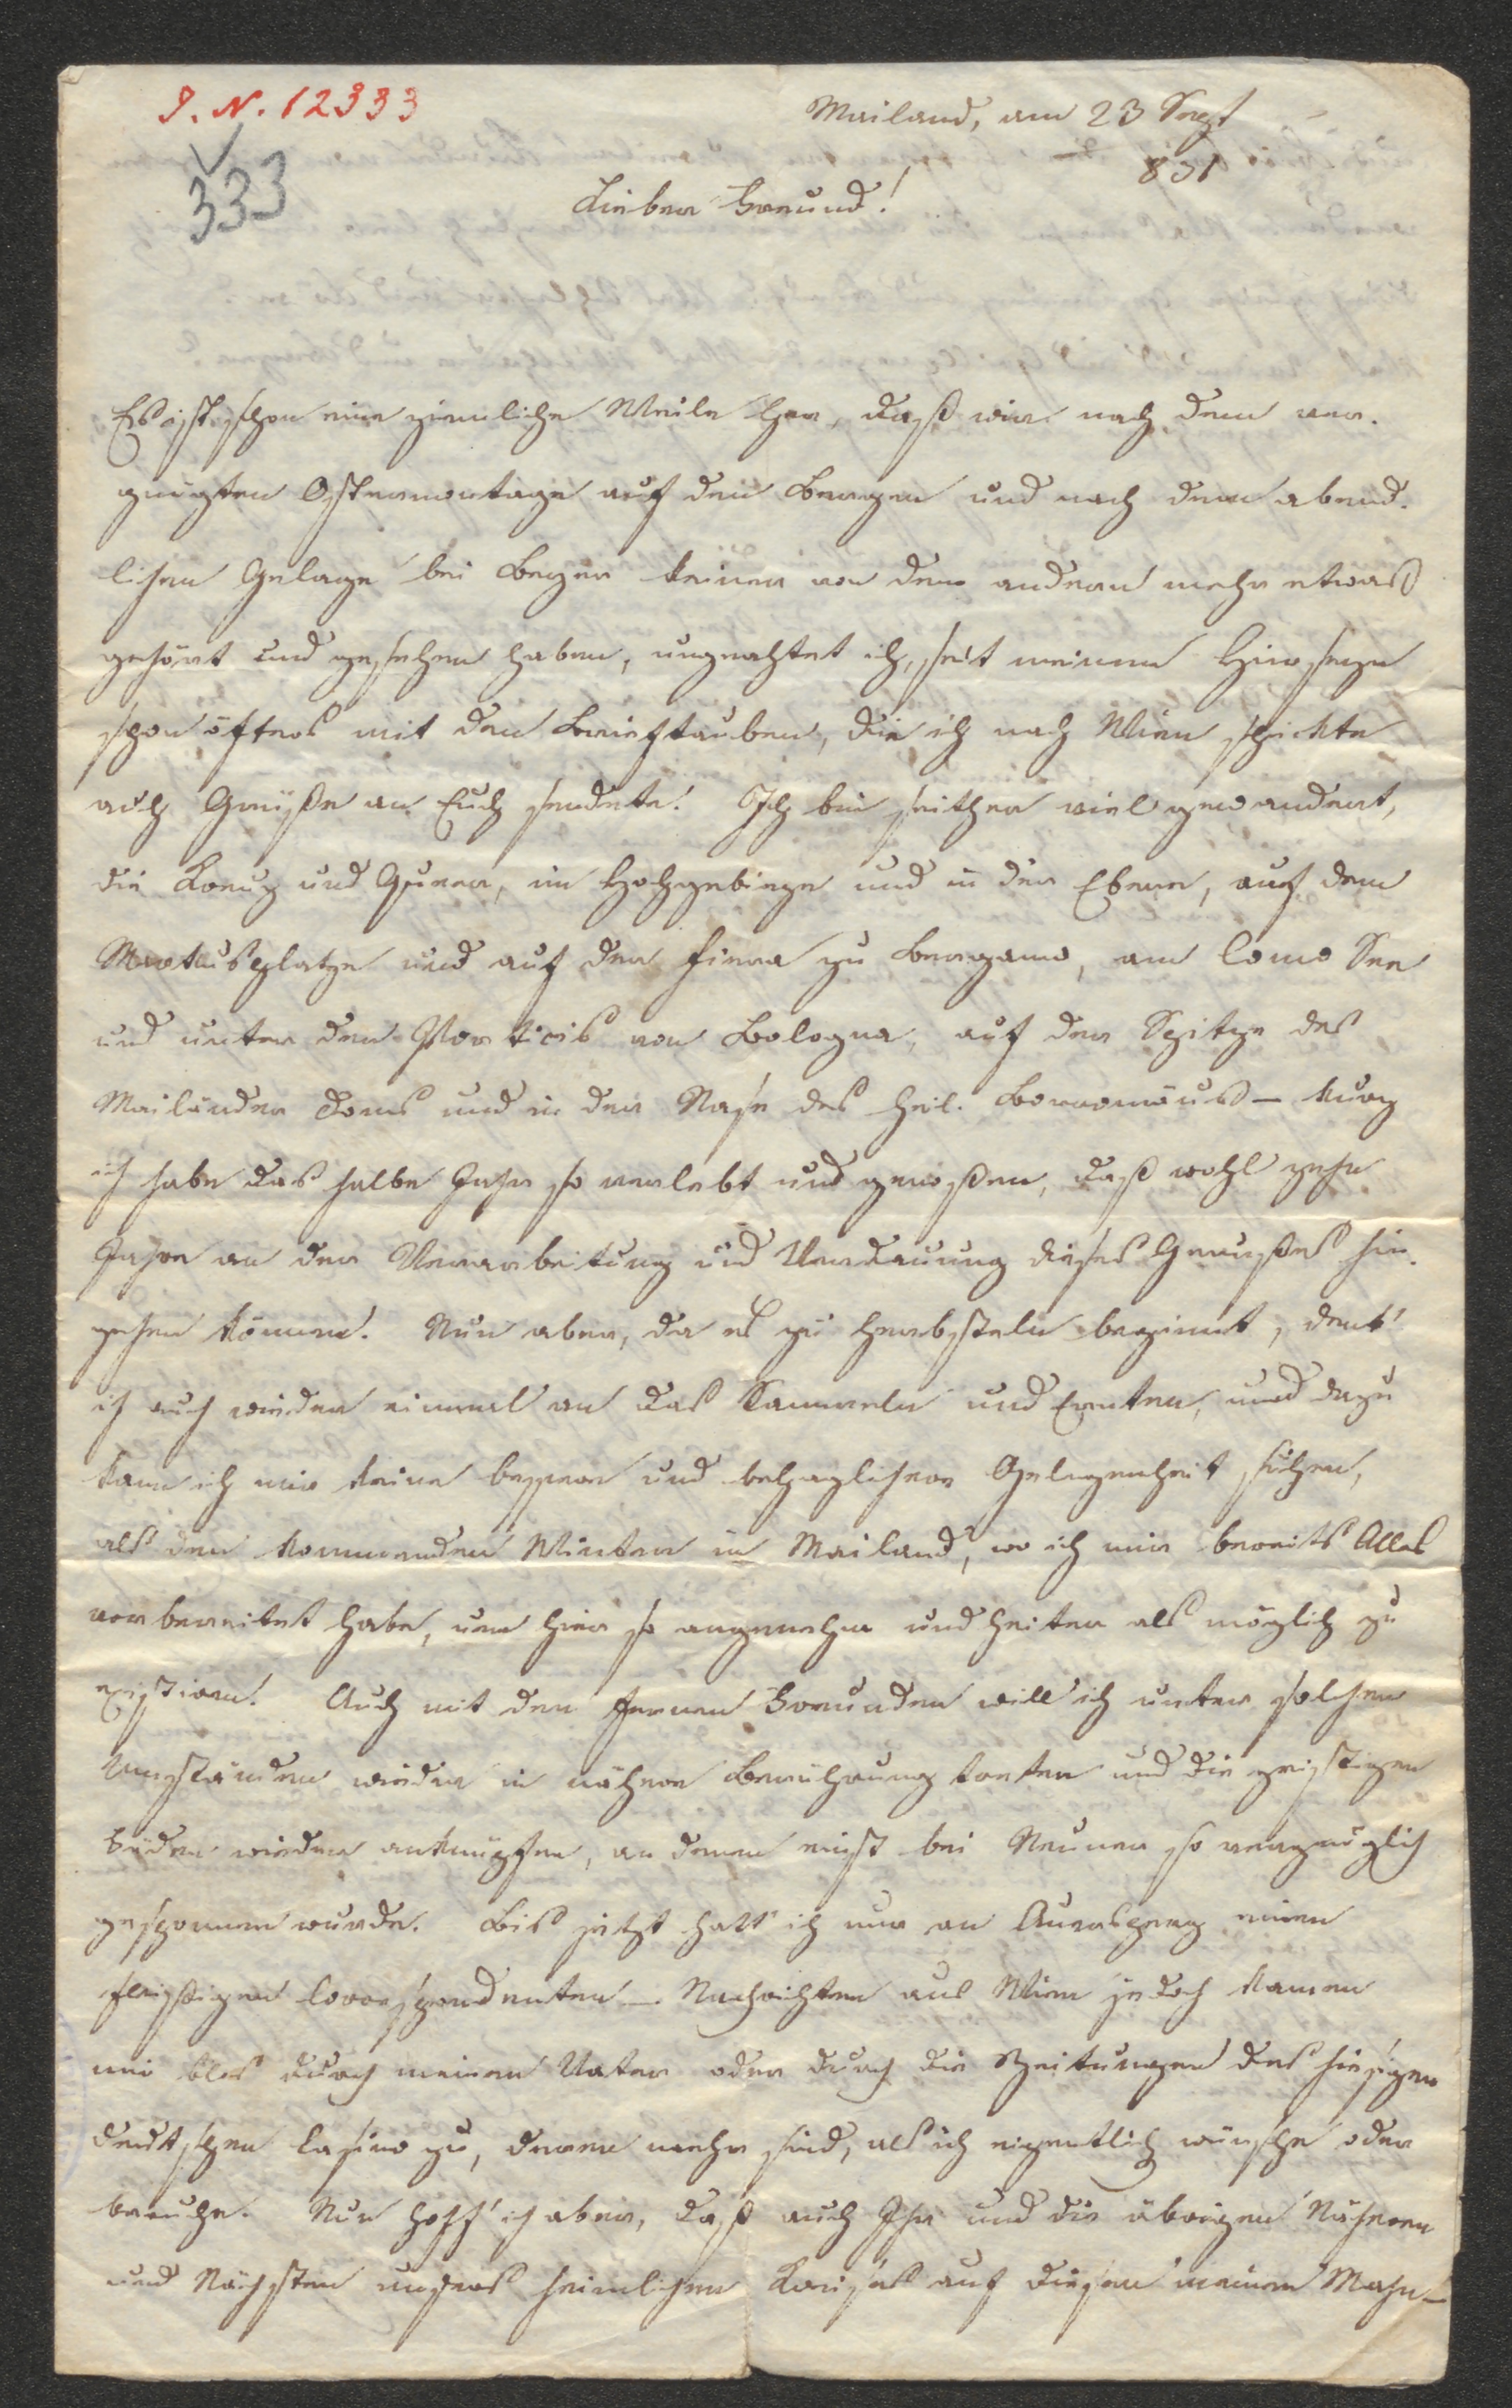 I. N. 12333
333
Mailand, am 23 Sept
831
Lieber Freund!
Es ist schon eine ziemliche Weile her, daß wir nach dem ver-
gnügten Ostermontage auf den Bergen und nach dem abend-
lichen Gelage bei Beyer keiner von dem andern mehr etwas
gehört und gesehen haben, ungeachtet ich, seit meinem Hierseyn
schon öfters mit den Brieftauben, die ich nach Wien schickte
auch Grüße an Euch sendete! Ich bin seither viel gewandert,
die Kreuz und Queer, im Hochgebirge und in der Ebene, auf dem
Markusplatze und auf der Fiera zu Bergamo, am Como See
und unter den Porticis von Bologna, auf der Spitze des
Mailänder Doms und in der Nase des heil. Borromäus – kurz
ich habe das halbe Jahr so verlebt und genoßen, daß wohl zehn
Jahre an der Verarbeitung und Verdauung dieses Genußes hin-
gehen können. Nun aber, da es zu herbsteln beginnt, denk'
ich auch wieder einmal an das Sammeln und Ernten, und dazu
kann ich mir keine bessere und behaglichere Gelegenheit suchen,
als den kommenden Winter in Mailand, wo ich mir bereits Alles
vorbereitet habe, um hier so angenehm und heiter als möglich zu
existiren. Auch mit den fernen Freunden will ich unter solchen
Umständen wieder in nähere Berührung treten und die geistigen
Fäden wieder anknüpfen, an denen einst bei Neuner so vergnüglich
gesponnen wurde. Bis jetzt hatt' ich nur an Auersperg einen
fleißigen Correspondenten – Nachrichten aus Wien jedoch kamen
mir blos durch meinen Vater oder durch die Zeitungen des hiesigen
deutschen Casino zu, deren mehr sind, als ich eigentlich wünsche oder
brauche. Nun hoff' ich aber, daß auch Ihr und die übrigen Näheren
und Nächsten unseres heimlichen Kreises auf diesen meinen Mahn-